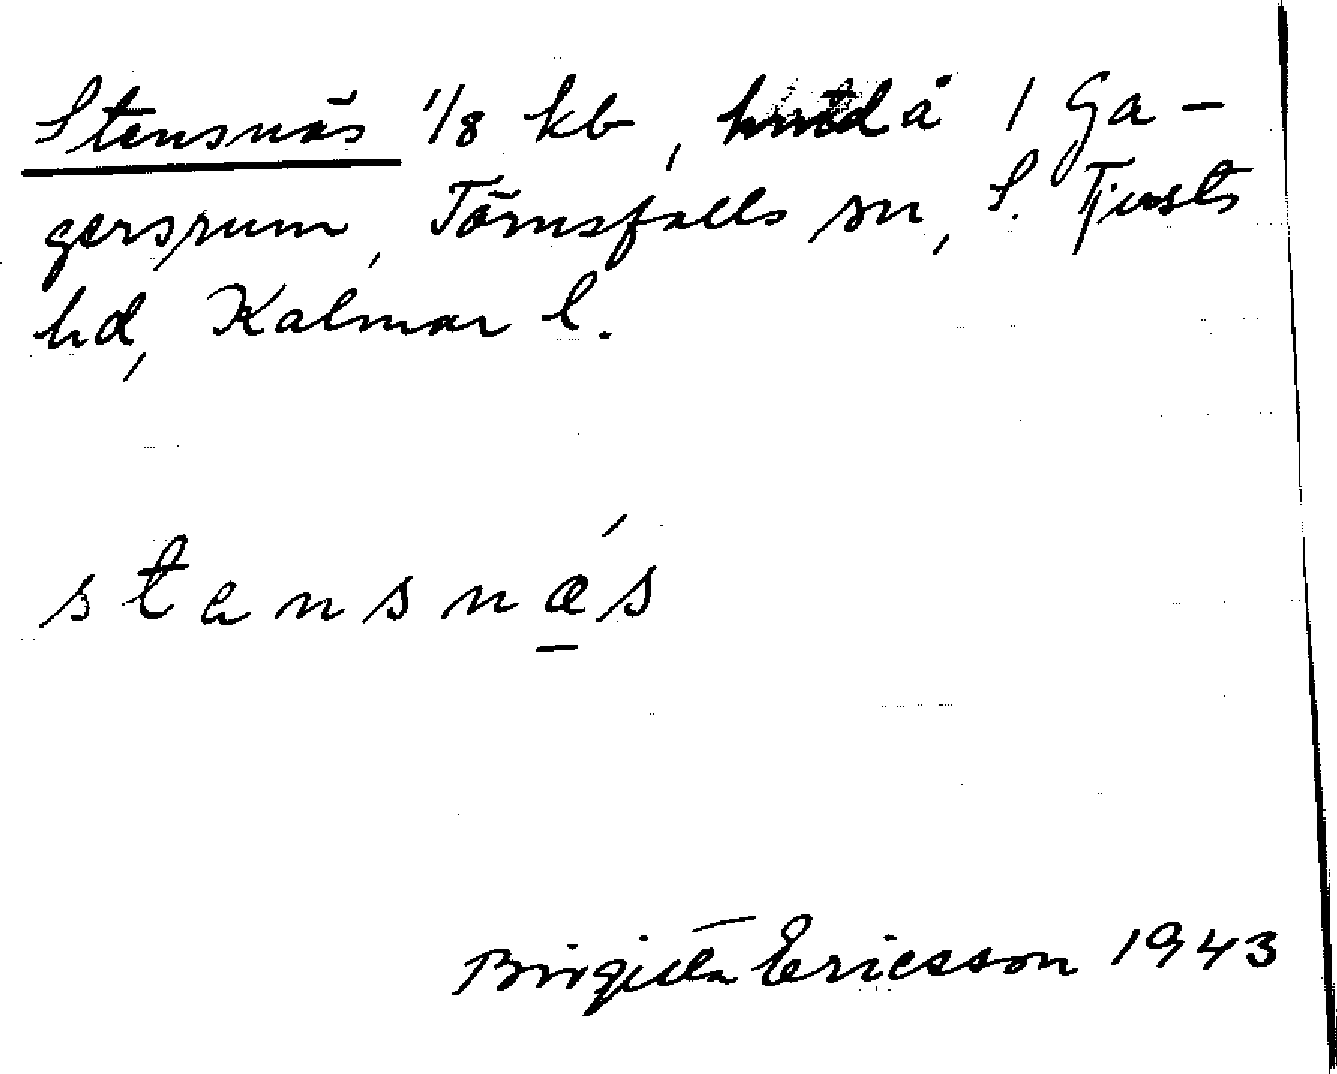 Stensnäs 1/8 kb, å 1 Ga-
gersrum, Törnsfalls sn, S. Tjusts
hd, Kalmar l.
stensnǽ̱s
Birgitta Ericsson 1943